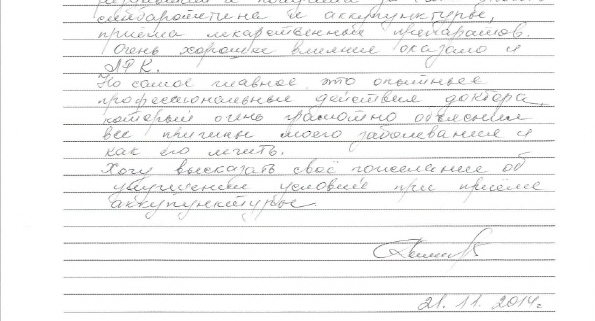 и аккупунктуры,
приёма лекарственных препаратов.
Очень хорошее влияние оказало и
ЛФК.
Но самое главное, это опытные
профессиональные действия доктора,
который очень грамотно объяснил
все причины моего заболевания и
как его лечить.
Хочу высказать своё пожелание об
улучшении условий при приёме
аккупунктуры.
21.11.2014г.